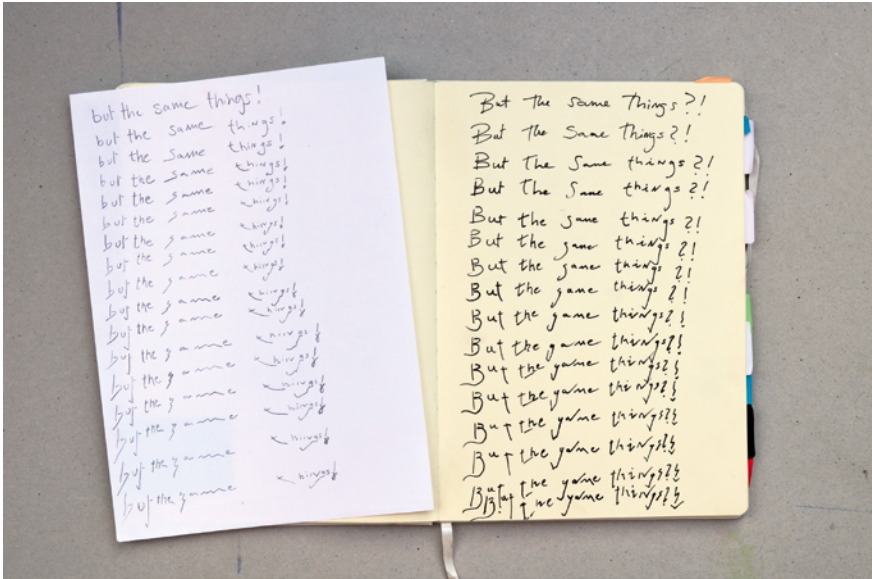 but the same things!
but the same things!
but the same things!
but the same things!
but the same things!
but the same things!
but the same things!
but the same things!
but the same things!
but the same hings!
but the same hings!
but the zame hings!
but the zame hings!
but the zame hings!
but the zame hings!
but the zame hings!
but the zame hings!
But The Same Things?!
But The Same Things?!
But The Same things?!
But The Same things?!
But the same things?!
But the same things?!
But the game things?!
But the game things?!
But the game things?!
But the game things?!
But the yame things?!
But the yame things?!
But the yame things?!
But the yame things?!
But the yame things?!
But the yame things?!